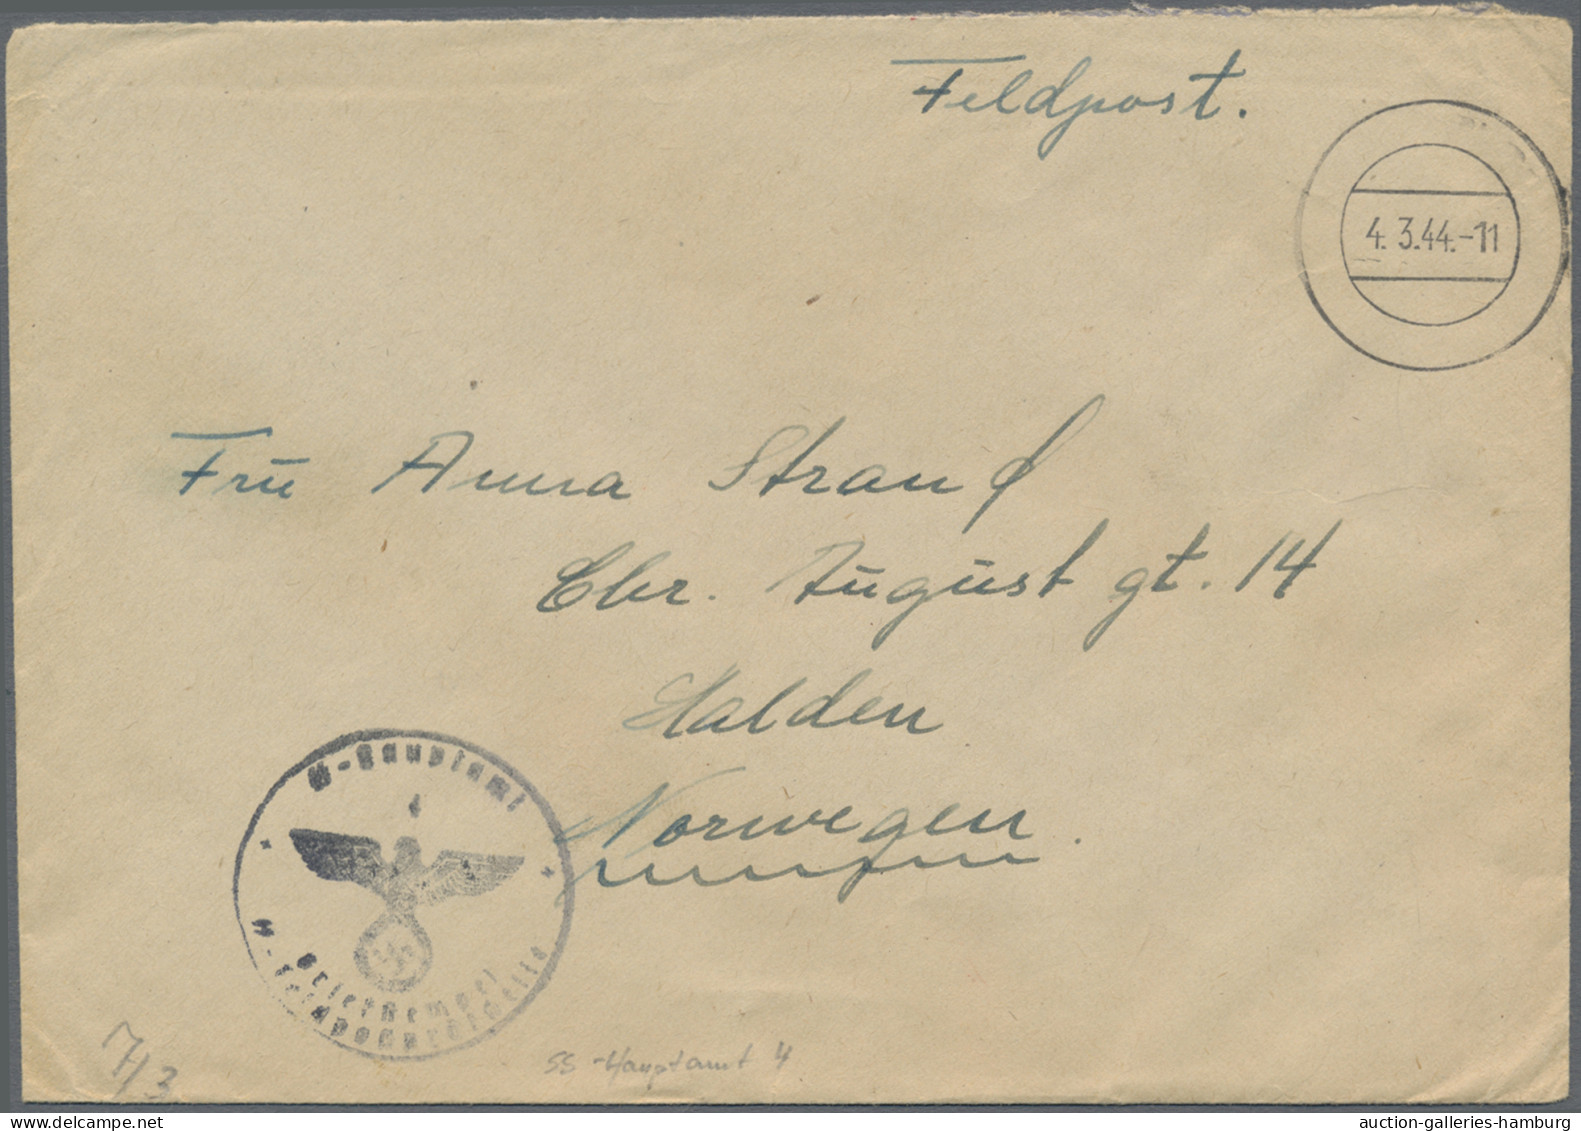 Feldpost.
4.3.44.-11
Fru Anna Strand
Chr. August gt. 14
Halden
Norwegen.
ᛋᛋ-Hauptamt
4
Briefstempel
ᛋᛋ-Feldpostprüfstelle
7/3
SS-Hauptamt 4
auction-galleries-hamburg